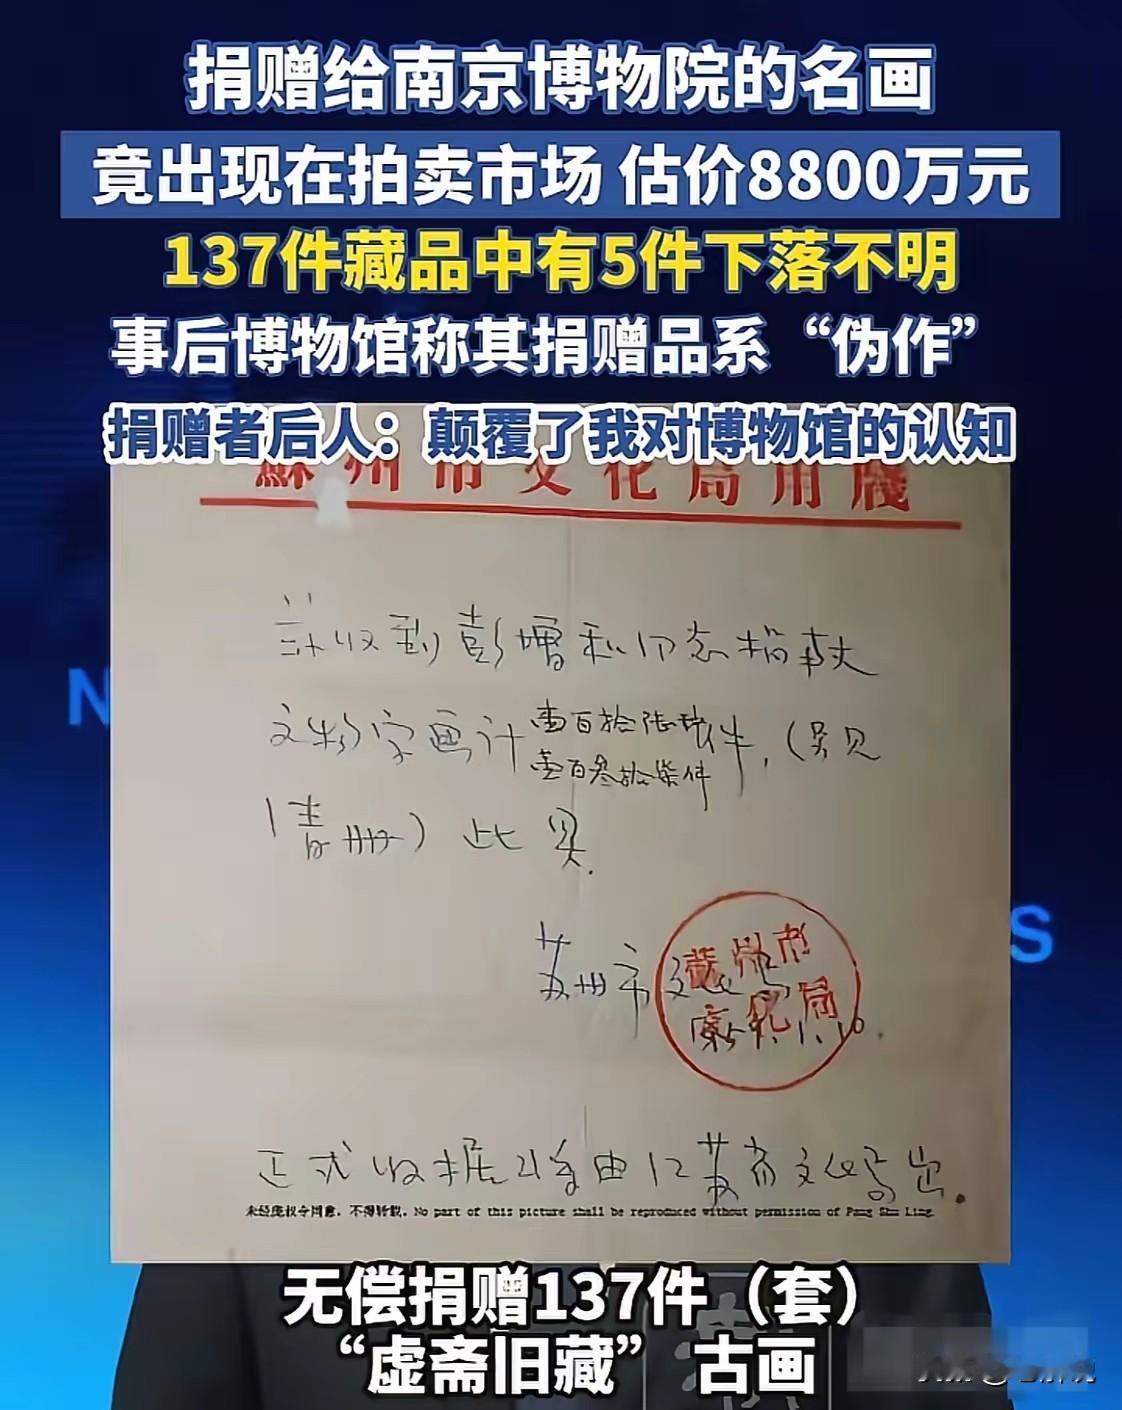 捐赠给南京博物院的名画
竟出现在拍卖市场 估价8800万元
137件藏品中有5件下落不明
事后博物馆称其捐赠品系“伪作”
捐赠者后人：颠覆了我对博物馆的认知
蘇州市文化局用牋
兹收到彭增和同志捐献
文物字画计
壹百叁拾柒件
件，（另见
清册）此具.
苏州市文化局
蘇州市
文化局
正式收据将由江苏省文化局出.
未经庞叔令同意，不得转载。No part of this picture shall be reproduced without permission of Pang Shu Ling.
N
S
无偿捐赠137件（套）
“虚斋旧藏” 古画